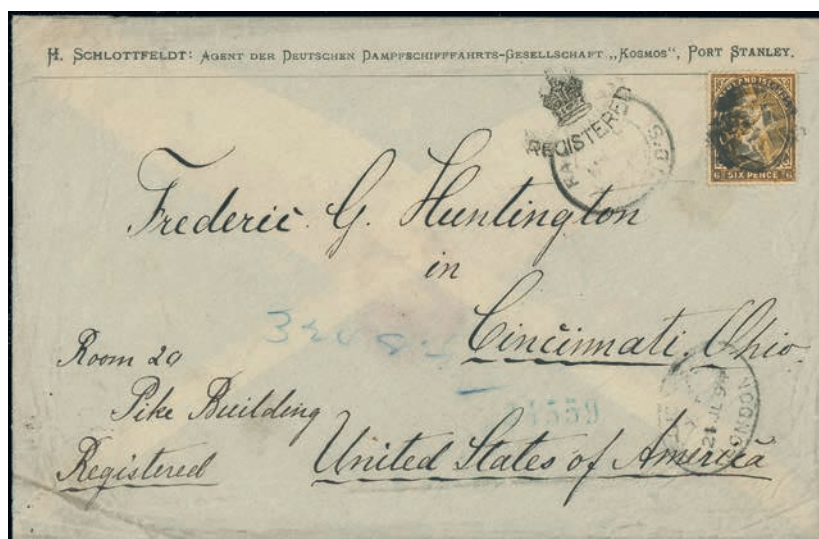 H. SCHLOTTFELDT: AGENT DER DEUTSCHEN DAMPFSCHIFFFAHRTS-GESELLSCHAFT „KOSMOS", PORT STANLEY.
REGISTERED
SIX PENCE
Frederic G. Huntington
in
Cincinnati. Ohio.
Room 29
Pike Building
Registered
United States of America
LONDON